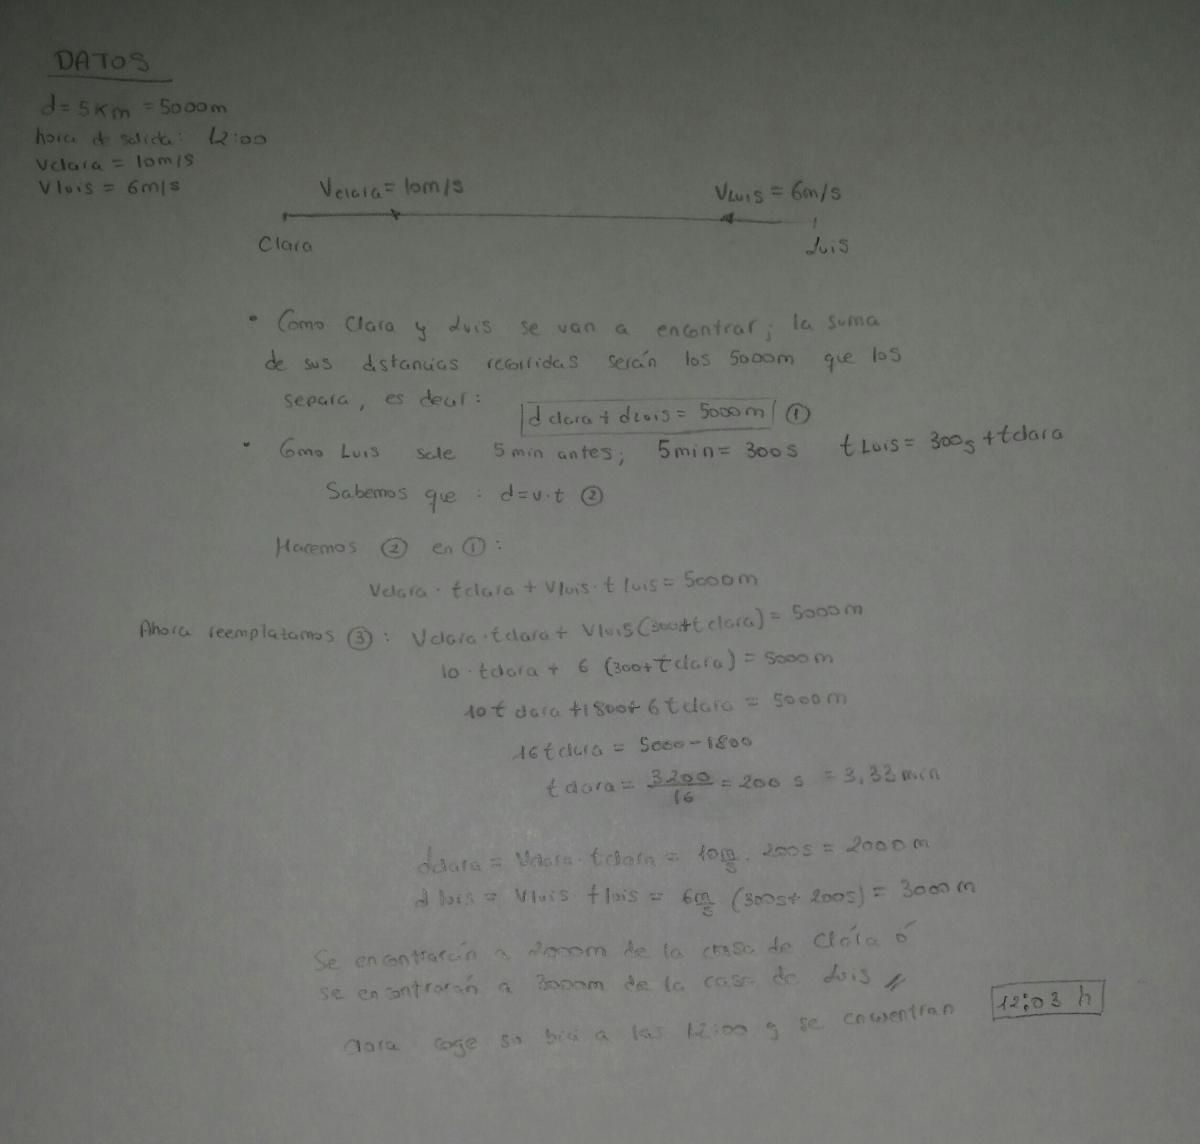 DATOS
d = 5 Km = 5000m
hora de salida: 12:00
Vclara = 10m/s
Vluis = 6m/s
Vclara = 10m/s VLuis = 6m/s
Clara Luis
• Como Clara y Luis se van a encontrar; la suma
de sus distancias recorridas serán los 5000m que los
separa, es decir:
d clara + dLuis = 5000m ①
• Como Luis sale 5 min antes; 5min = 300s t Luis = 300s + tclara
Sabemos que : d=v.t ②
Hacemos ② en ① :
Vclara · tclara + Vluis · t luis = 5000m
Ahora reemplazamos ③ : Vclara · tclara + Vluis (300+t clara) = 5000m
10 · tclara + 6 (300+ t clara) = 5000m
10 t clara +1800+ 6 t clara = 5000m
16 t clara = 5000-1800
t clara = 3200/16 = 200 s = 3,33 min
dclara = Vclara · tclara = 10 m/s . 200s = 2000m
d luis = Vluis · tluis = 6 m/s (300s+ 200s) = 3000m
Se encontrarán a 2000m de la casa de Clara ó
se encontrarán a 3000m de la casa de Luis //
Clara coge su bici a las 12:00 y se encuentran 12:03 h